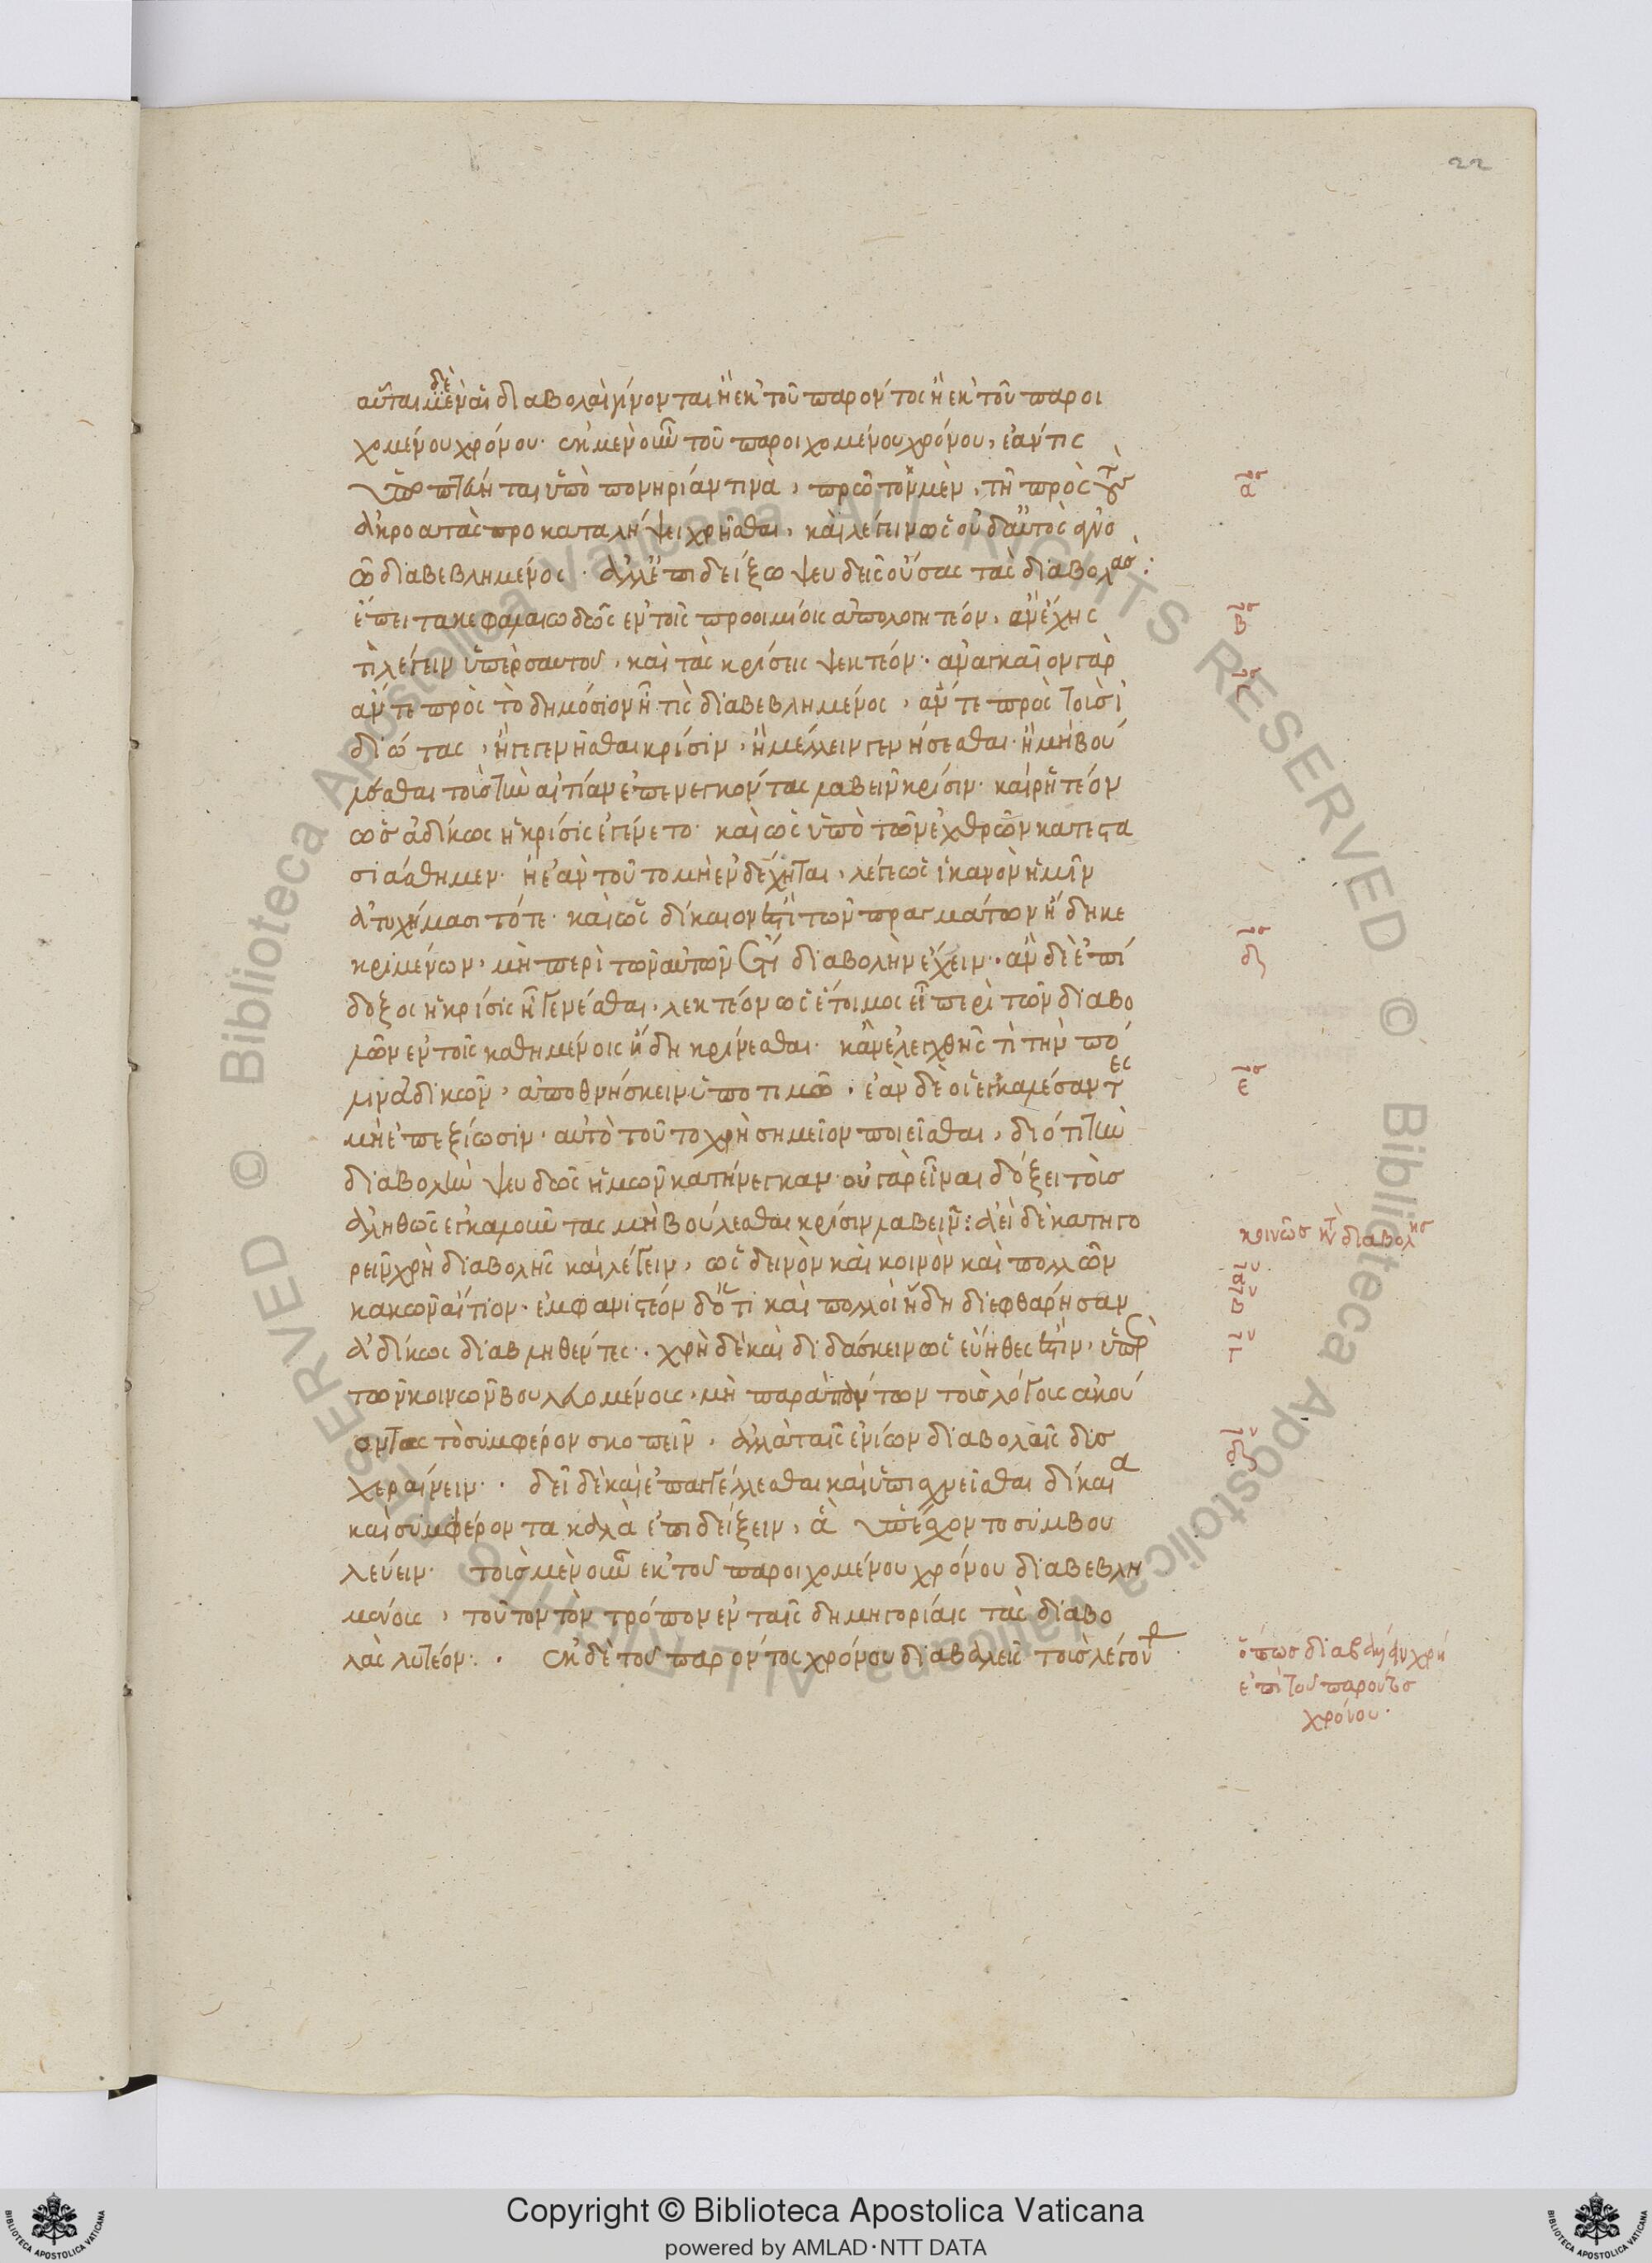 22
αὗται μὲν δὲ αἱ διαβολαὶ γίνονται ἢ ἐκ τοῦ παρόντος ἢ ἐκ τοῦ παροι
χομένου χρόνου· ἐκ μὲν οὖν τοῦ παροιχομένου χρόνου, ἐάν τις
ὑποπτεύηται ὑπὸ πονηρίαν τινὰ, πρῶτον μὲν, τῇ πρὸς τοὺς
ἀκροατὰς προκαταλήψει χρῆσθαι, καὶ λέγειν ὡς οὐδ' αὐτὸς ἀγνο
ῶ διαβεβλημένος· ἀλλ' ἐπιδείξω ψευδεῖς οὔσας τὰς διαβολάς:
ἔπειτα κεφαλαιωδῶς ἐν τοῖς προοιμίοις ἀπολογητέον, ἂν ἔχῃς
τὶ λέγειν ὑπὲρ σαυτοῦ, καὶ τὰς κρίσεις ψεκτέον· ἀναγκαῖον γὰρ
ἄν τε πρὸς τὸ δημόσιον ᾖ τις διαβεβλημένος, ἄν τε πρὸς τοὺς ἰ
διώτας, ἢ γεγενῆσθαι κρίσιν, ἢ μέλλειν γενήσεσθαι· ἢ μὴ βού
λεσθαι τοὺς τὴν αἰτίαν ἐπενεγκόντας λαβεῖν κρίσιν· καὶ ῥητέον
ὡς ἀδίκως ἡ κρίσις ἐγένετο· καὶ ὡς ὑπὸ τῶν ἐχθρῶν κατεστα
σιάσθημεν· ἢ ἐὰν τοῦτο μὴ ἐνδέχηται, λέγε ὡς ἱκανὸν ἡμῖν
ἀτυχήμασι τότε· καὶ ὡς δίκαιον ἐστὶ τῶν πραγμάτων ἤδη κε
κριμένων, μὴ περὶ τῶν αὐτῶν ἔτι διαβολὴν ἔχειν· ἂν δὲ ἐπί
δοξος ἡ κρίσις ᾖ γενέσθαι, λεκτέον ὡς ἕτοιμος εἶ περὶ τῶν διαβο
λῶν ἐν τοῖς καθημένοις ἤδη κρίνεσθαι· κἂν ἐλεγχθῇς τὶ τὴν πό
λιν ἀδικῶν, ἀποθνήσκειν ὑποτιμῶ. ἐὰν δὲ οἱ ἐγκαλέσαντες
μὴ ἐπεξίωσιν· αὐτὸ τοῦτο χρὴ σημεῖον ποιεῖσθαι, διότι τὴν
διαβολὴν ψευδῶς ἡμῶν κατήνεγκαν· οὐ γὰρ εἶναι δόξει τοὺς
ἀληθῶς ἐγκαλοῦντας μὴ βούλεσθαι κρίσιν λαβεῖν: ἀεὶ δὲ κατηγο
ρεῖν χρὴ διαβολῆς καὶ λέγειν, ὡς δεινὸν καὶ κοινὸν καὶ πολλῶν
κακῶν αἴτιον· ἐμφανιστέον δ' ὅτι καὶ πολλοὶ ἤδη διεφθάρησαν
ἀδίκως διαβληθέντες. χρὴ δὲ καὶ διδάσκειν ὡς εὔηθες ἐστὶν, ὑπὲρ
τῶν κοινῶν βουλευομένοις, μὴ παρὰ πάντων τοὺς λόγοις ἀκού
οντας τὸ συμφέρον σκοπεῖν, ἀλλὰ ταῖς ἐνίων διαβολαῖς δυσ
χεραίνειν. δεῖ δὲ καὶ ἐπαγγέλλεσθαι καὶ ὑπισχνεῖσθαι δίκαια
καὶ συμφέροντα καλὰ ἐπιδείξειν, ἃ ὑπέσχοντο συμβου
λεύειν· τοὺς μὲν οὖν ἐκ τοῦ παροιχομένου χρόνου διαβεβλη
μένοις, τοῦτον τὸν τρόπον ἐν ταῖς δημηγορίαις τὰς διαβο
λὰς λυτέον. ἐκ δὲ τοῦ παρόντος χρόνου διαβαλεῖς τοὺς λέγον
αος
βος
γος
δος
εος
κοινῶς κατὰ διαβολῆς
αον
βον
γον
δον
ὅπως διαβάλλειν χρὴ
ἐπὶ τοῦ παρόντος
χρόνου.
© Biblioteca Apostolica Vaticana ALL RIGHTS RESERVED © Biblioteca Apostolica Vaticana ALL RIGHTS RESERVED
Copyright © Biblioteca Apostolica Vaticana
powered by AMLAD·NTT DATA
BIBLIOTECA APOSTOLICA VATICANA
BIBLIOTECA APOSTOLICA VATICANA